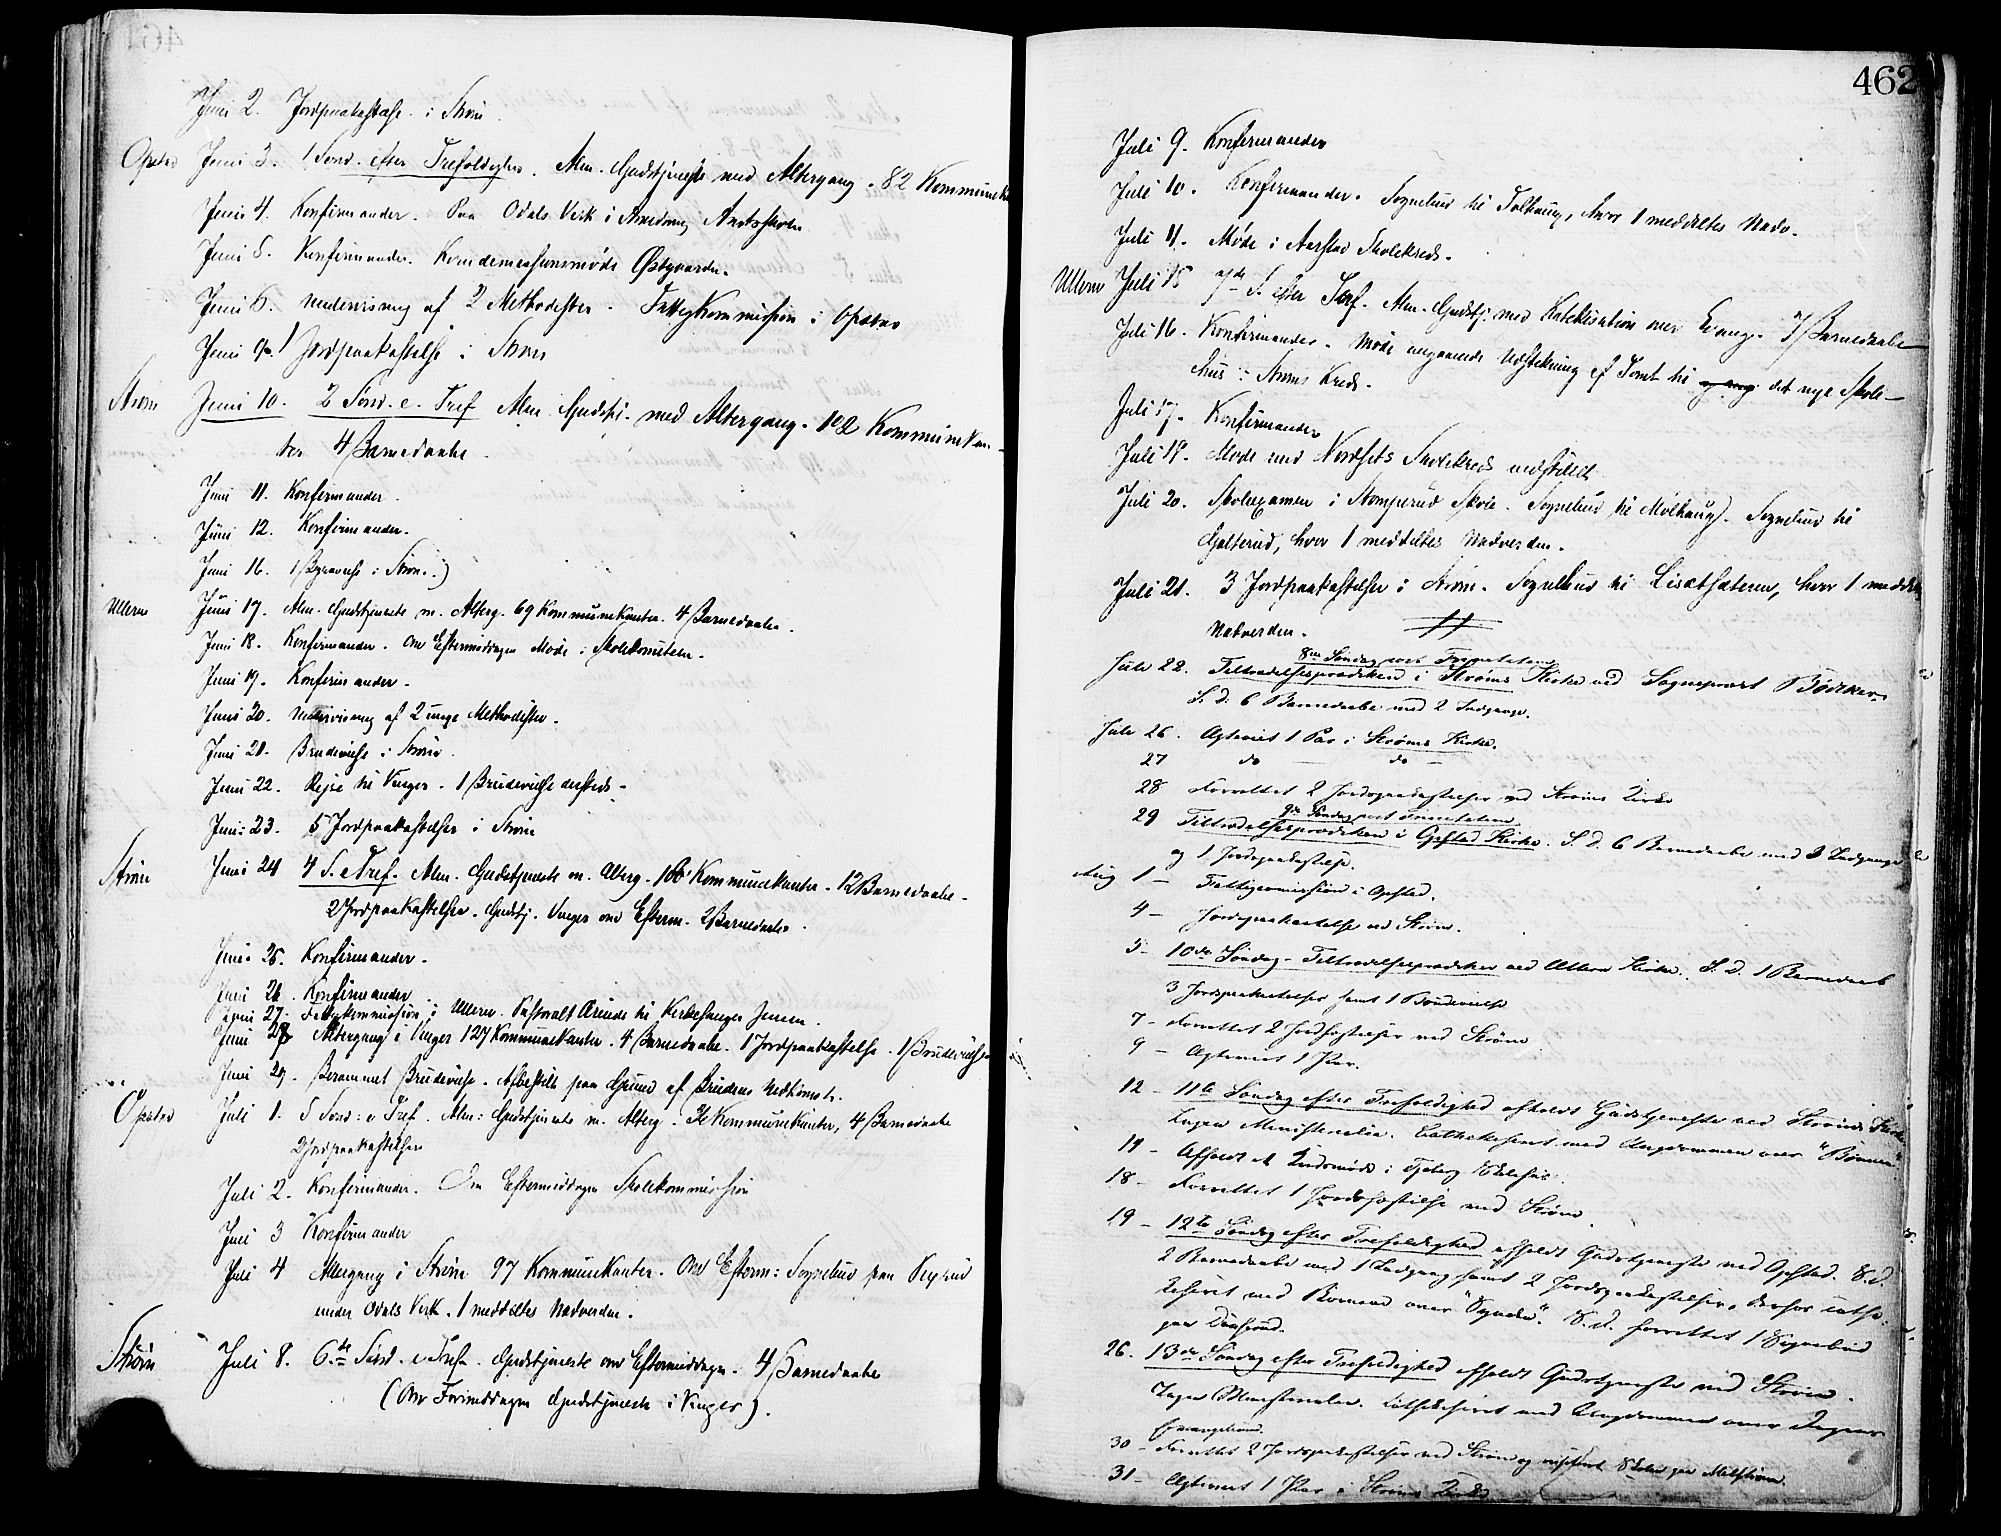 Juni 2. Jordpaakastelse i Strøm.
Opstad Juni 3. 1 Sønd. efter Trefoldighed. Alm. Gudstjeneste med Altergang. 82 Kommunik
Juni 4. Konfirmander. Paa Odals Verk i Anledning Amtsskolen
Juni 5. Konfirmander. Kommissionsmøde Østgaarden.
Juni 6. Undervisning af 2 Methodister. Fattigkommission i Opstad
Juni 9. 1 Jordpaakastelse i Strøm
Strøm Juni 10. 2 Sønd. e. Tref Alm. Gudstj. med Altergang. 102 Kommunikan-
ter 4 Barnedaabe.
Juni 11. Konfirmander.
Juni 12. Konfirmander.
Juni 16. 1 Begravelse i Strøm.
Ullern Juni 17. Alm. Gudstjeneste m. Alterg. 69 Kommunikanter. 4 Barnedaabe.
Juni 18. Konfirmander. Om Eftermiddagen Møde i Skolekomiteen.
Juni 19. Konfirmander.
Juni 20. Undervisning af 2 unge Methodister.
Juni 21. Brudevielse i Strøm.
Juni 22. Rejse til Vinger. 1 Brudevielse dersteds.
Juni 23. 5 Jordpaakastelser i Strøm
Strøm Juni 24 4 S. e Tref. Alm. Gudstjeneste m. Alterg. Kommunikanter. 12 Barnedaabe.
2 Jordpaakastelser. Gudstj. Vinger om Efterm. 2 Barnedaabe.
Juni 25. Konfirmander.
Juni 26. Konfirmander
Juni 27. Fattigkommission i Ullern. Pastoralt Ærinde til Kirkesanger Jensen.
Juni 28 Altergang i Vinger 127 Kommunikanter. 4 Barnedaabe. 1 Jordpaakastelse. 1 Brudevielse
Juni 29. Berammet Brudevielse. Afbestilt paa Grund af Brudens Nedkomst.
Opstad Juli 1. 5 Sønd. e Tref. Alm. Gudstjeneste m. Alterg. Kommunikanter, 4 Barnedaabe
2 Jordpaakastelser
Juli 2. Konfirmander. Om Eftermiddagen Skolekommission
Juli 3 Konfirmander
Juli 4 Altergang i Strøm 97 Kommunikanter. Om Efterm: Sognebud paa
under Odals Verk. 1 meddeltes Nadverden.
Strøm Juli 8. 6te Sønd. e. Tref. Gudstjeneste om Eftermiddagen. 4 Barnedaabe
(Om Formiddagen Gudstjeneste i Vinger).
462
Juli 9. Konfirmander
Juli 10. Konfirmander. Sognebud til hvor 1 meddeltes Nadv.
Juli 11. Møde i Aarstad Skolekreds.
Ullern Juli 15 7de S. efter Tref. Alm. Gudstj. med Katekisation over Evang. 7 Barnedaabe
Juli 16. Konfirmander. Møde angaaende Udstikning af Tomt til det nye Skole-
hus i Strøms Kreds.
Juli 17. Konfirmander
Juli 19. Møde med Nordsets Skolekreds
Juli 20. Skolexamen i Stomperud Skole. Sognebud til Mølhaug. Sognebud til
Galterud, hvor 1 meddeltes Nadverden.
Juli 21. 3 Jordpaakastelser i Strøm. Sognebud til Lisætsæteren, hvor 1 meddeltes
Nadverden.
8de Søndag post Trinitatem
Juli 22. Tiltrædelsesprædiken i Strøms Kirke ved Sogneprest Bødtker.
S. d. 6 Barnedaabe med 2 Indgange.
Juli 26. Egteviet 1 Par i Strøms Kirke.
27 do — do —
28 Forrettet 2 Jordspaakastelser ved Strøms Kirke
9de Søndag post Trinitatem
29 Tiltrædelsesprædiken i Opstad Kirke. S. d. 6 Barnedaabe med 3 Indgange
og 1 Jordspaakastelse.
Aug 1 — Fattigcommission i Opstad.
4 — Jordspaakastelse ved Strøm.
5 — 10de Søndag — Tiltrædelsesprædiken ved Ullern Kirke. S. d. 1 Barnedaab
3 Jordspaakastelser samt 1 Brudevielse
7 — Forrettet 2 Jordfæstelser ved Strøm
9 — Egteviet 1 Par.
12 — 11te Søndag efter Trefoldighed afholdt Gudstjeneste ved Strøms Kirke
Ingen Ministerialia. Cathekiseret med Ungdommen over "Bønnen"
14 — Afholdt Møde i Skolehus.
18 — Forrettet 1 Jordsfæstelse ved Strøm.
19 — 12te Søndag efter Trefoldighed afholdt Gudstjeneste ved Opstad. S. d.
2 Barnedaabe med 1 Indgang samt 2 Jordspaakastelser. Derhos cathe-
kiseret med Børnene over "Synden". S. d. forrettet 1 Sognebud
paa
26. 13de Søndag efter Trefoldighed afholdt Gudstjeneste ved Strøm.
Ingen Ministerialia. Cathekiseret med Ungdommen over Dagens
Evangelium.
30 — Forrettet 2 Jordspaakastelser ved Strøm og visiteret Skolen paa
31 — Egteviet 1 Par i Strøms Kirke